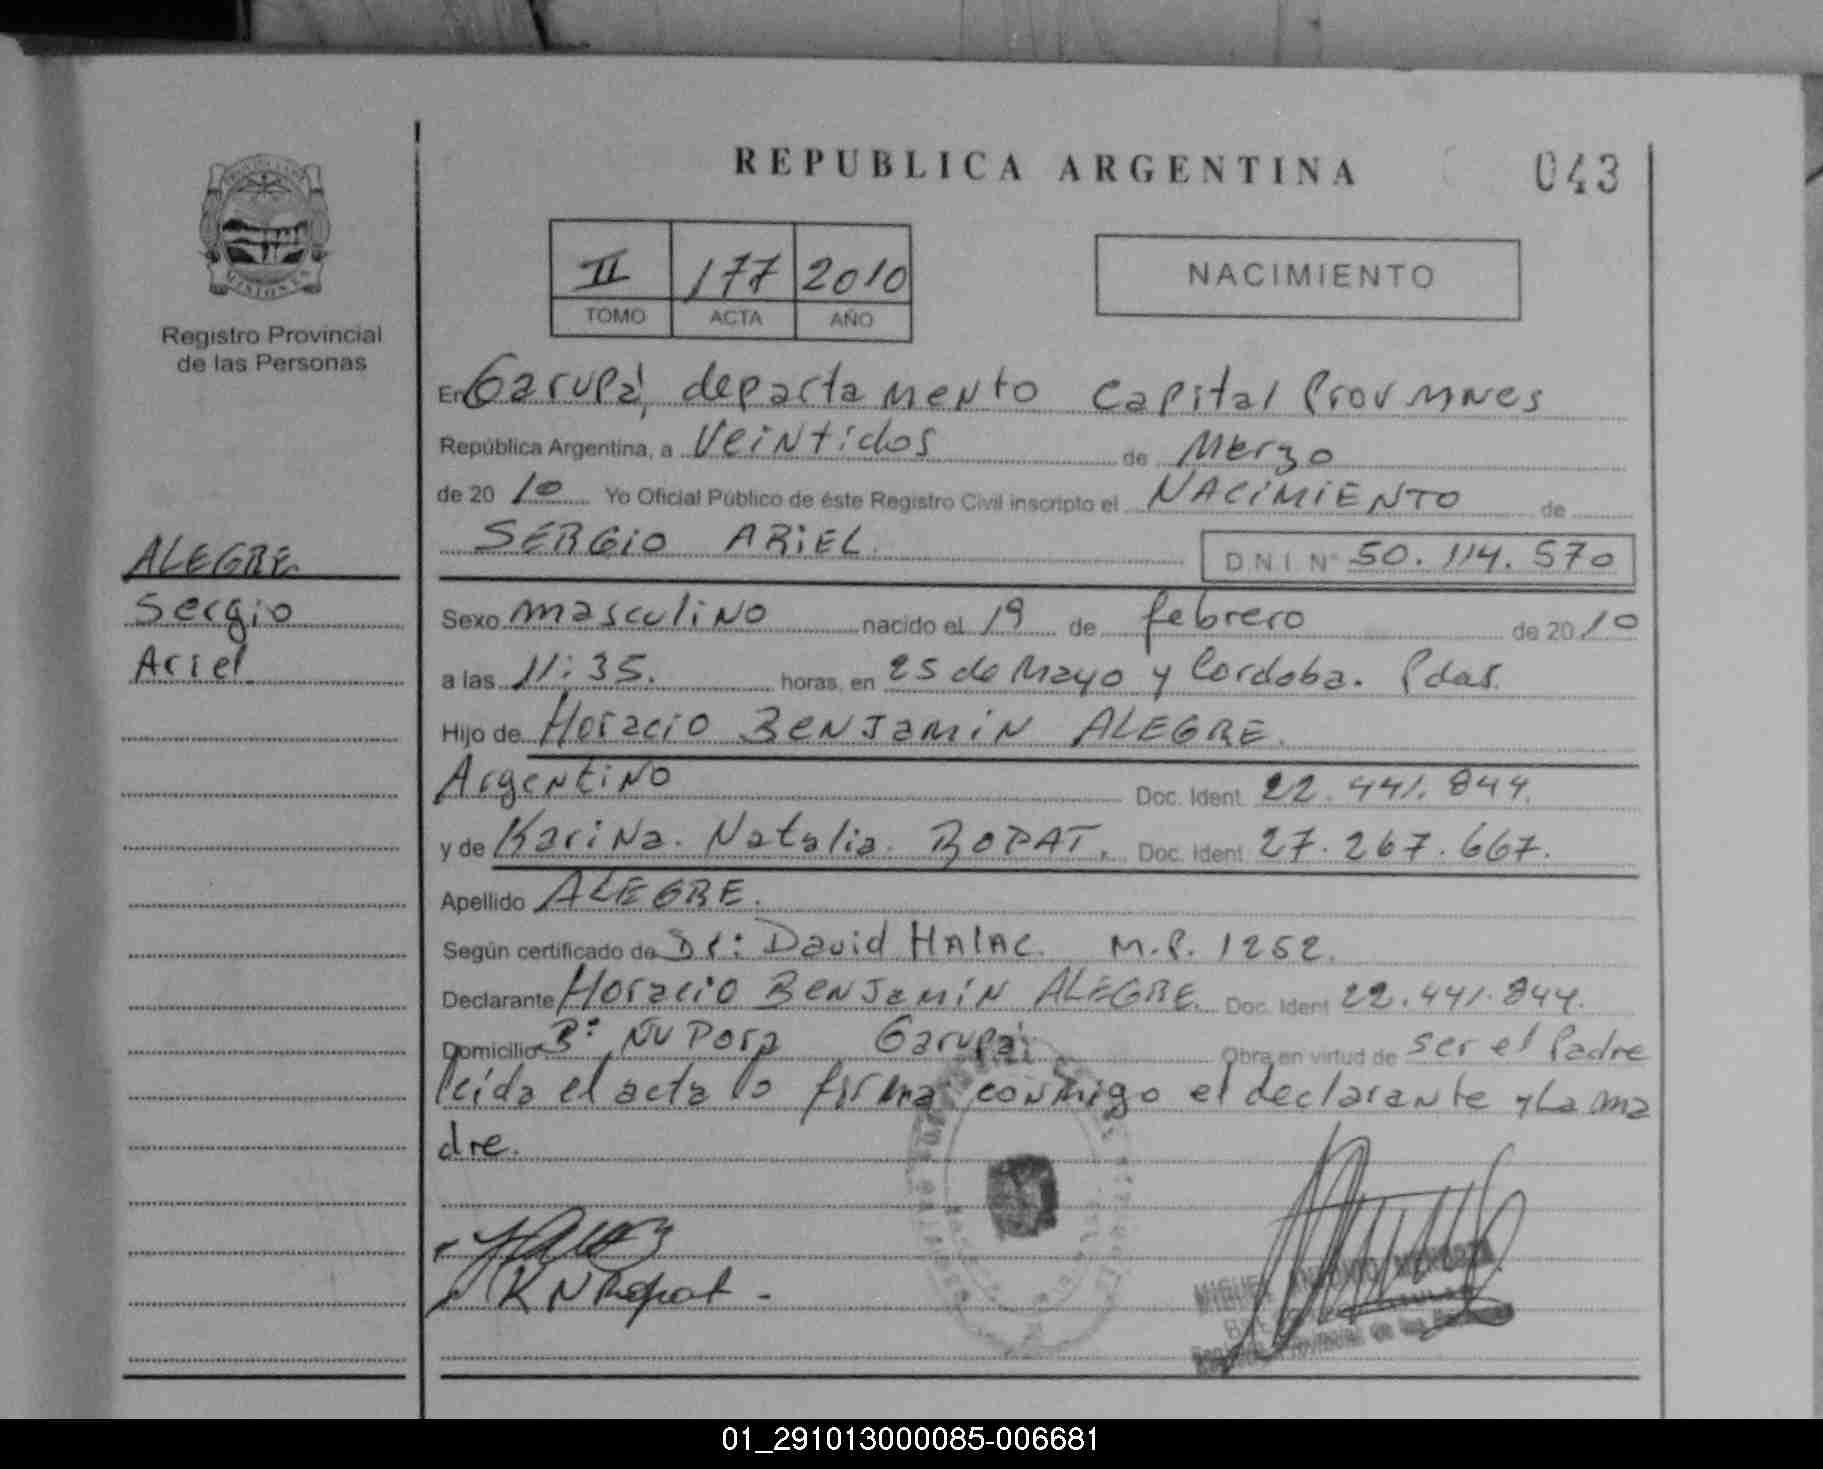 REPUBLICA ARGENTINA
043
II 177 2010
TOMO ACTA AÑO
NACIMIENTO
Registro Provincial
de las Personas
En Garupá, departamento Capital Prov Mnes
República Argentina, a Veintidos de Marzo
de 20 10 Yo Oficial Público de éste Registro Civil inscripto el NACIMIENTO de
SERGIO ARIEL. D.N.I. N° 50.114.570
ALEGRE
Sergio
Ariel
Sexo masculino nacido el 19 de febrero de 20 10
a las 11:35. horas, en 25 de Mayo y Cordoba. Pdas.
Hijo de Horacio BENJAMIN ALEGRE.
Argentino Doc. Ident. 22.441.844.
y de Karina. Natalia. ROPAT. Doc. Ident. 27.267.667.
Apellido ALEGRE.
Según certificado de Dr: David HALAC. M.P. 1252.
Declarante Horacio BENJAMIN ALEGRE. Doc. Ident. 22.441.844.
Domicilio B° Ñu Pora Garupá Obra en virtud de ser el Padre
leída el acta lo firma conmigo el declarante y La ma
dre.
K N Ropat.
MIGUEL ANTONIO
Provincial de las
01_291013000085-006681